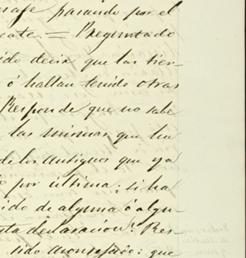 sage pasando por el
cate = Preguntado
ido decir que las tier-
ó hallan tenido otras
Responde que no sabe
las mismas que ha
de los antiguos que ya
por ultima: si ha
ido de alguna ó algu-
sta declaracion Res-
sido aconsejado: que